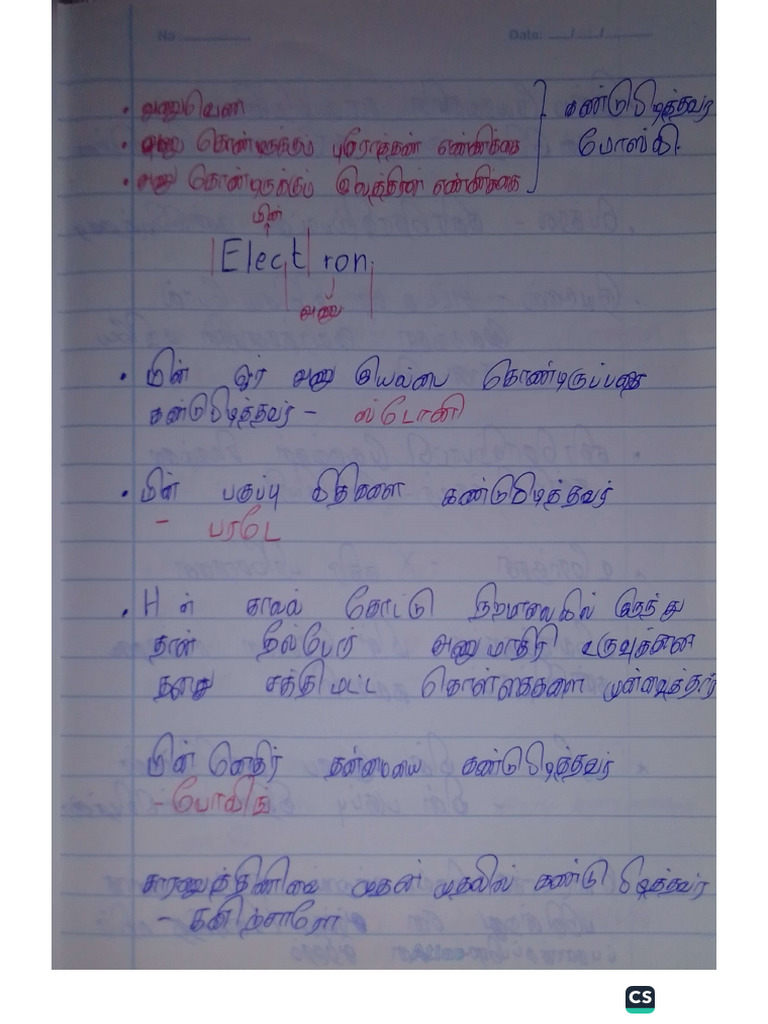 No
Date: __/__/__
• அணுவெண்
• அணு கொண்டிருக்கும் புரோத்தன் எண்ணிக்கை
• அணு கொண்டிருக்கும் இலத்திரன் எண்ணிக்கை
கண்டுபிடித்தவர்
போஸ்கி.
மின்
Electron
அணு
• மின் ஓர் அணு இயல்பை கொண்டிருப்பதை
கண்டுபிடித்தவர் - ஸ்டோனி
• மின் பகுப்பு விதிகளை கண்டுபிடித்தவர்
- பரடே
• H ன் காலல் கோட்டு நிறமாலையில் இருந்து
தான் நீல்போர் அணு மாதிரி உருவத்தினை
தனது சக்தி மட்ட கொள்கைகளை முன்வைத்தார்
மின்னெதிர் தன்மையை கண்டுபிடித்தவர்
- போலிங்
காரணுத்திணிவை முதன் முதலில் கண்டு பிடித்தவர்
- கனிற்சாரோ
CS